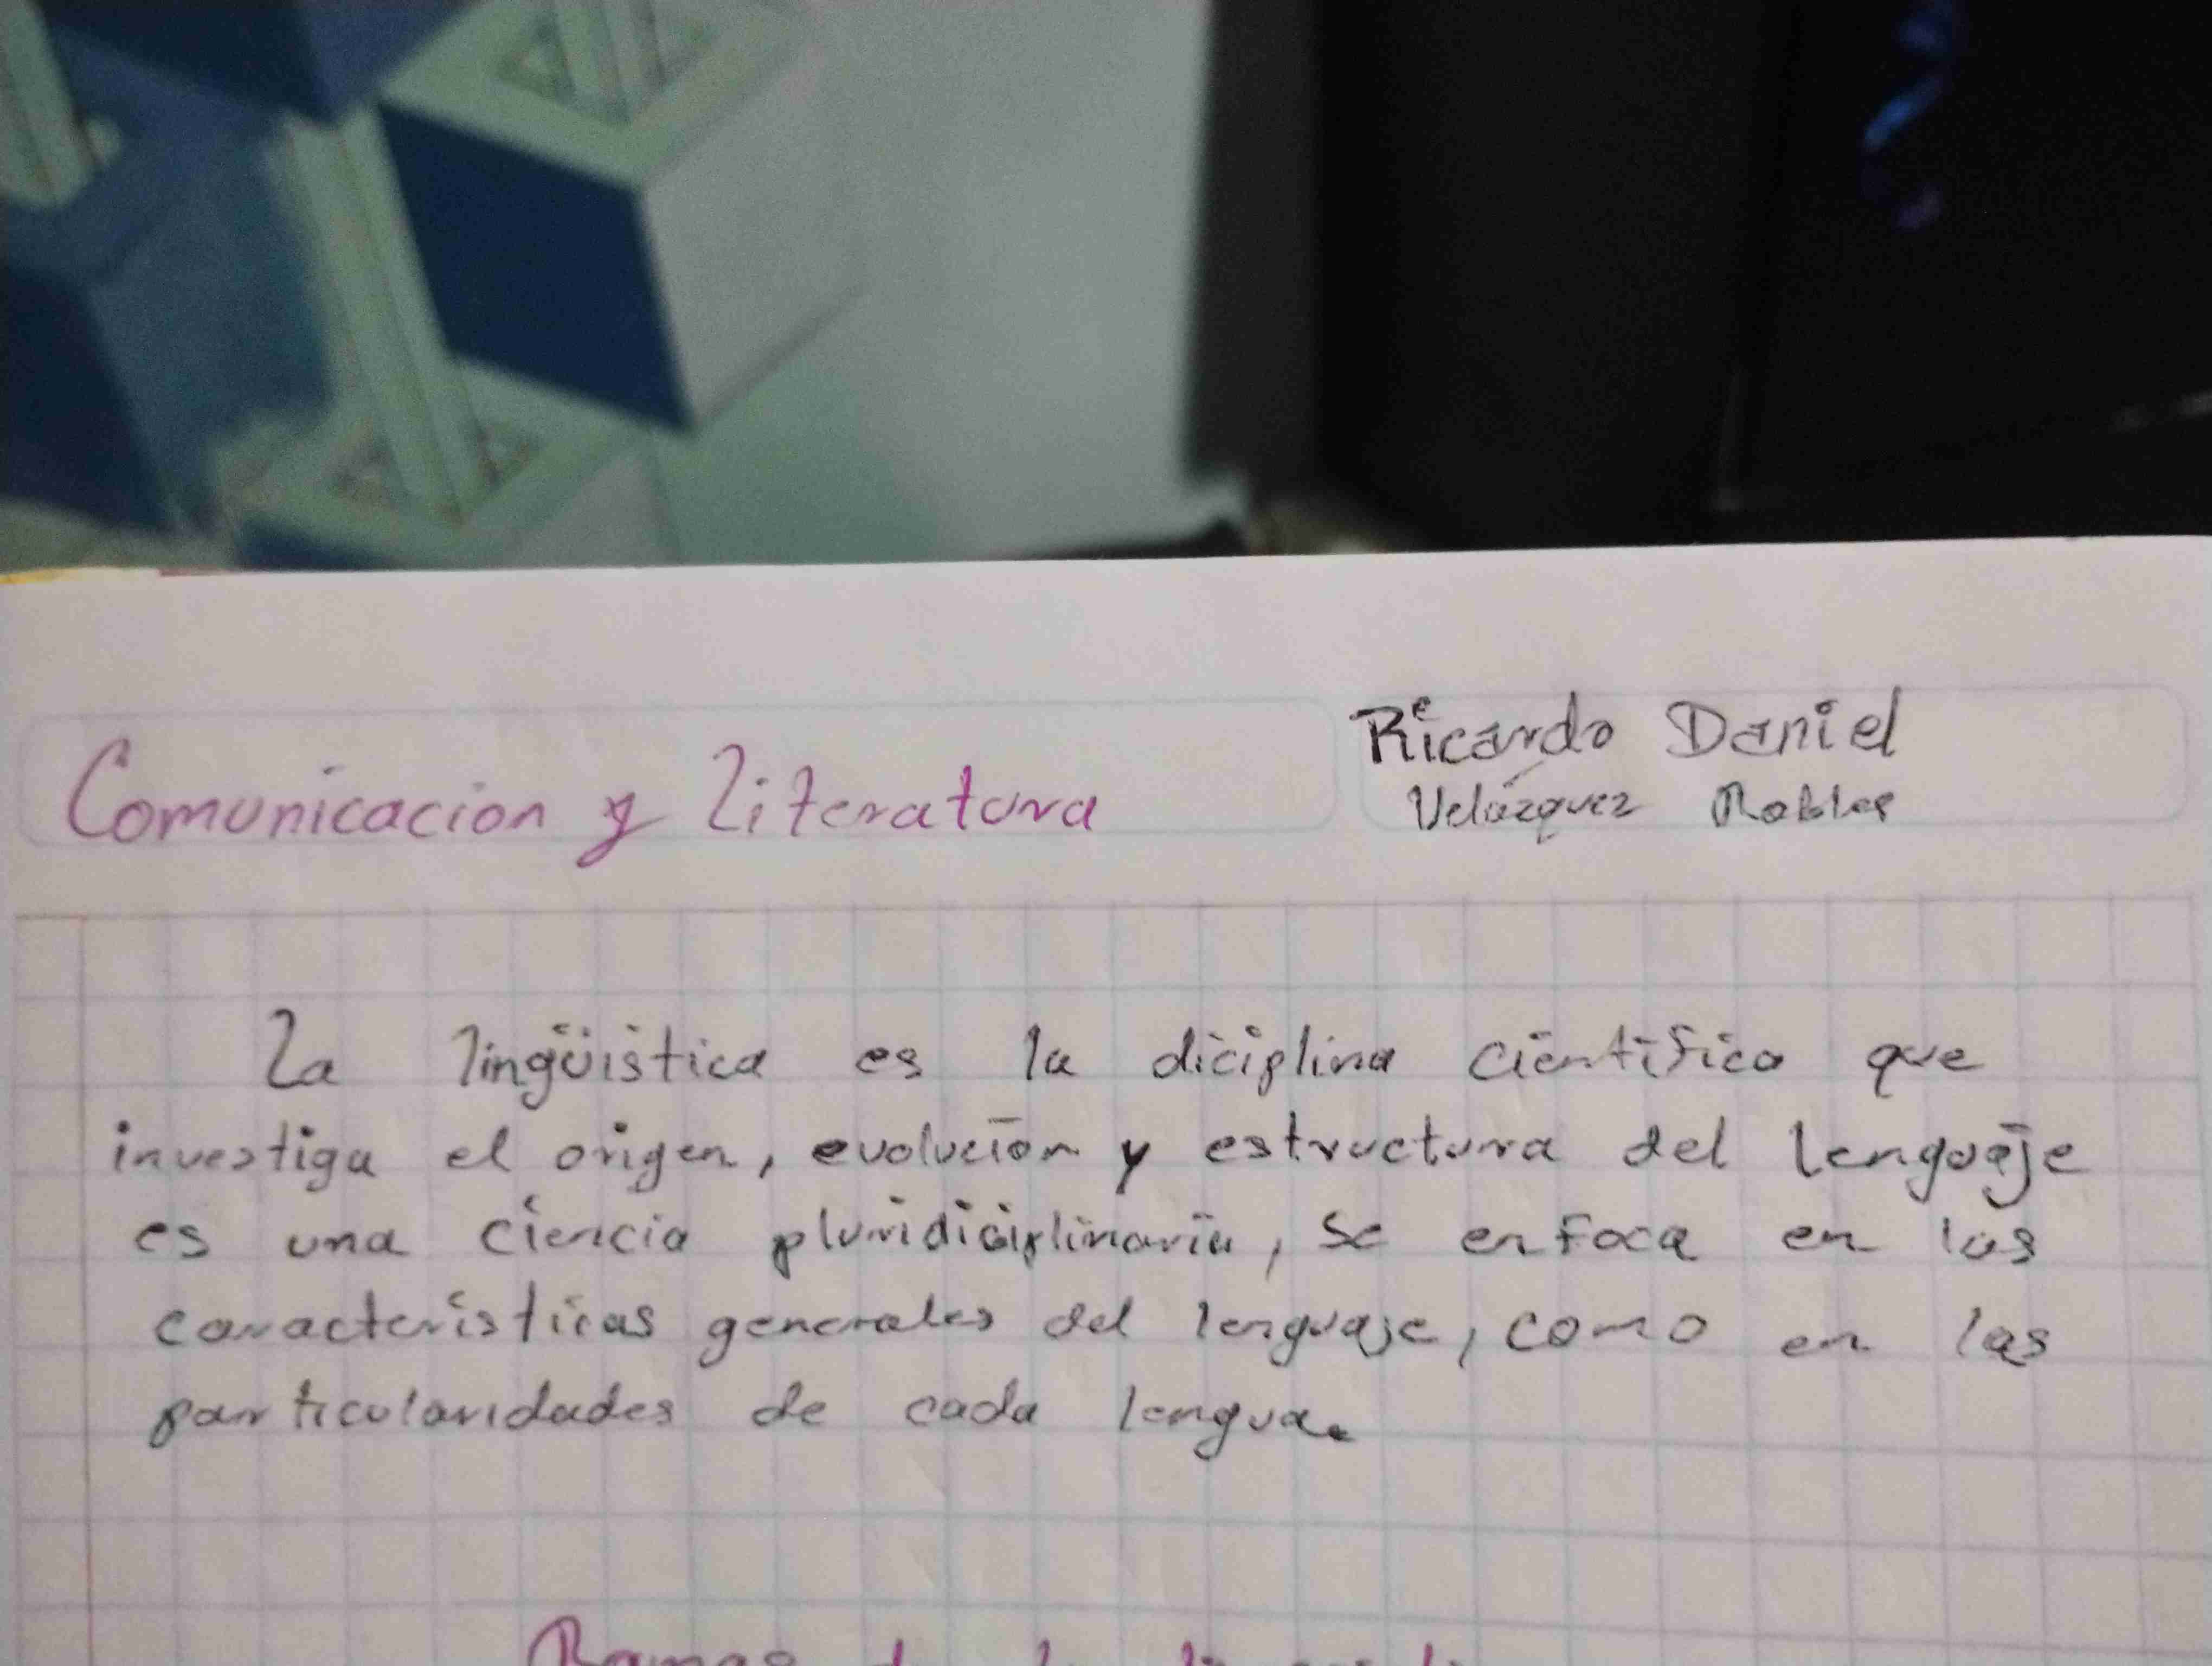 Comunicacion y Literatura
Ricardo Daniel
Velázquez Robles
La lingüistica es la diciplina cientifica que
investiga el origen, evolución y estructura del lenguaje
es una ciencia pluridiciplinaria, se enfoca en las
caracteristicas generales del lenguaje, como en las
particularidades de cada lengua.
Ramas de la